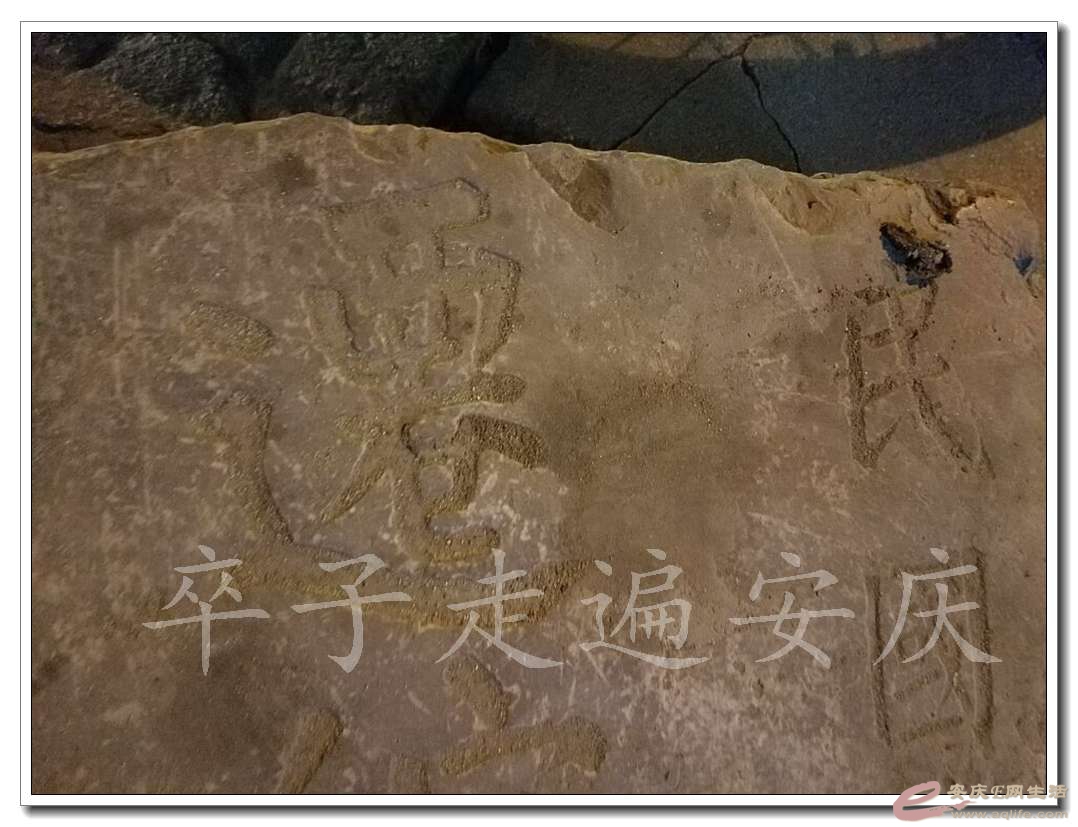 民國
遷
卒子走遍安庆
安庆E网生活
www.aqlife.com